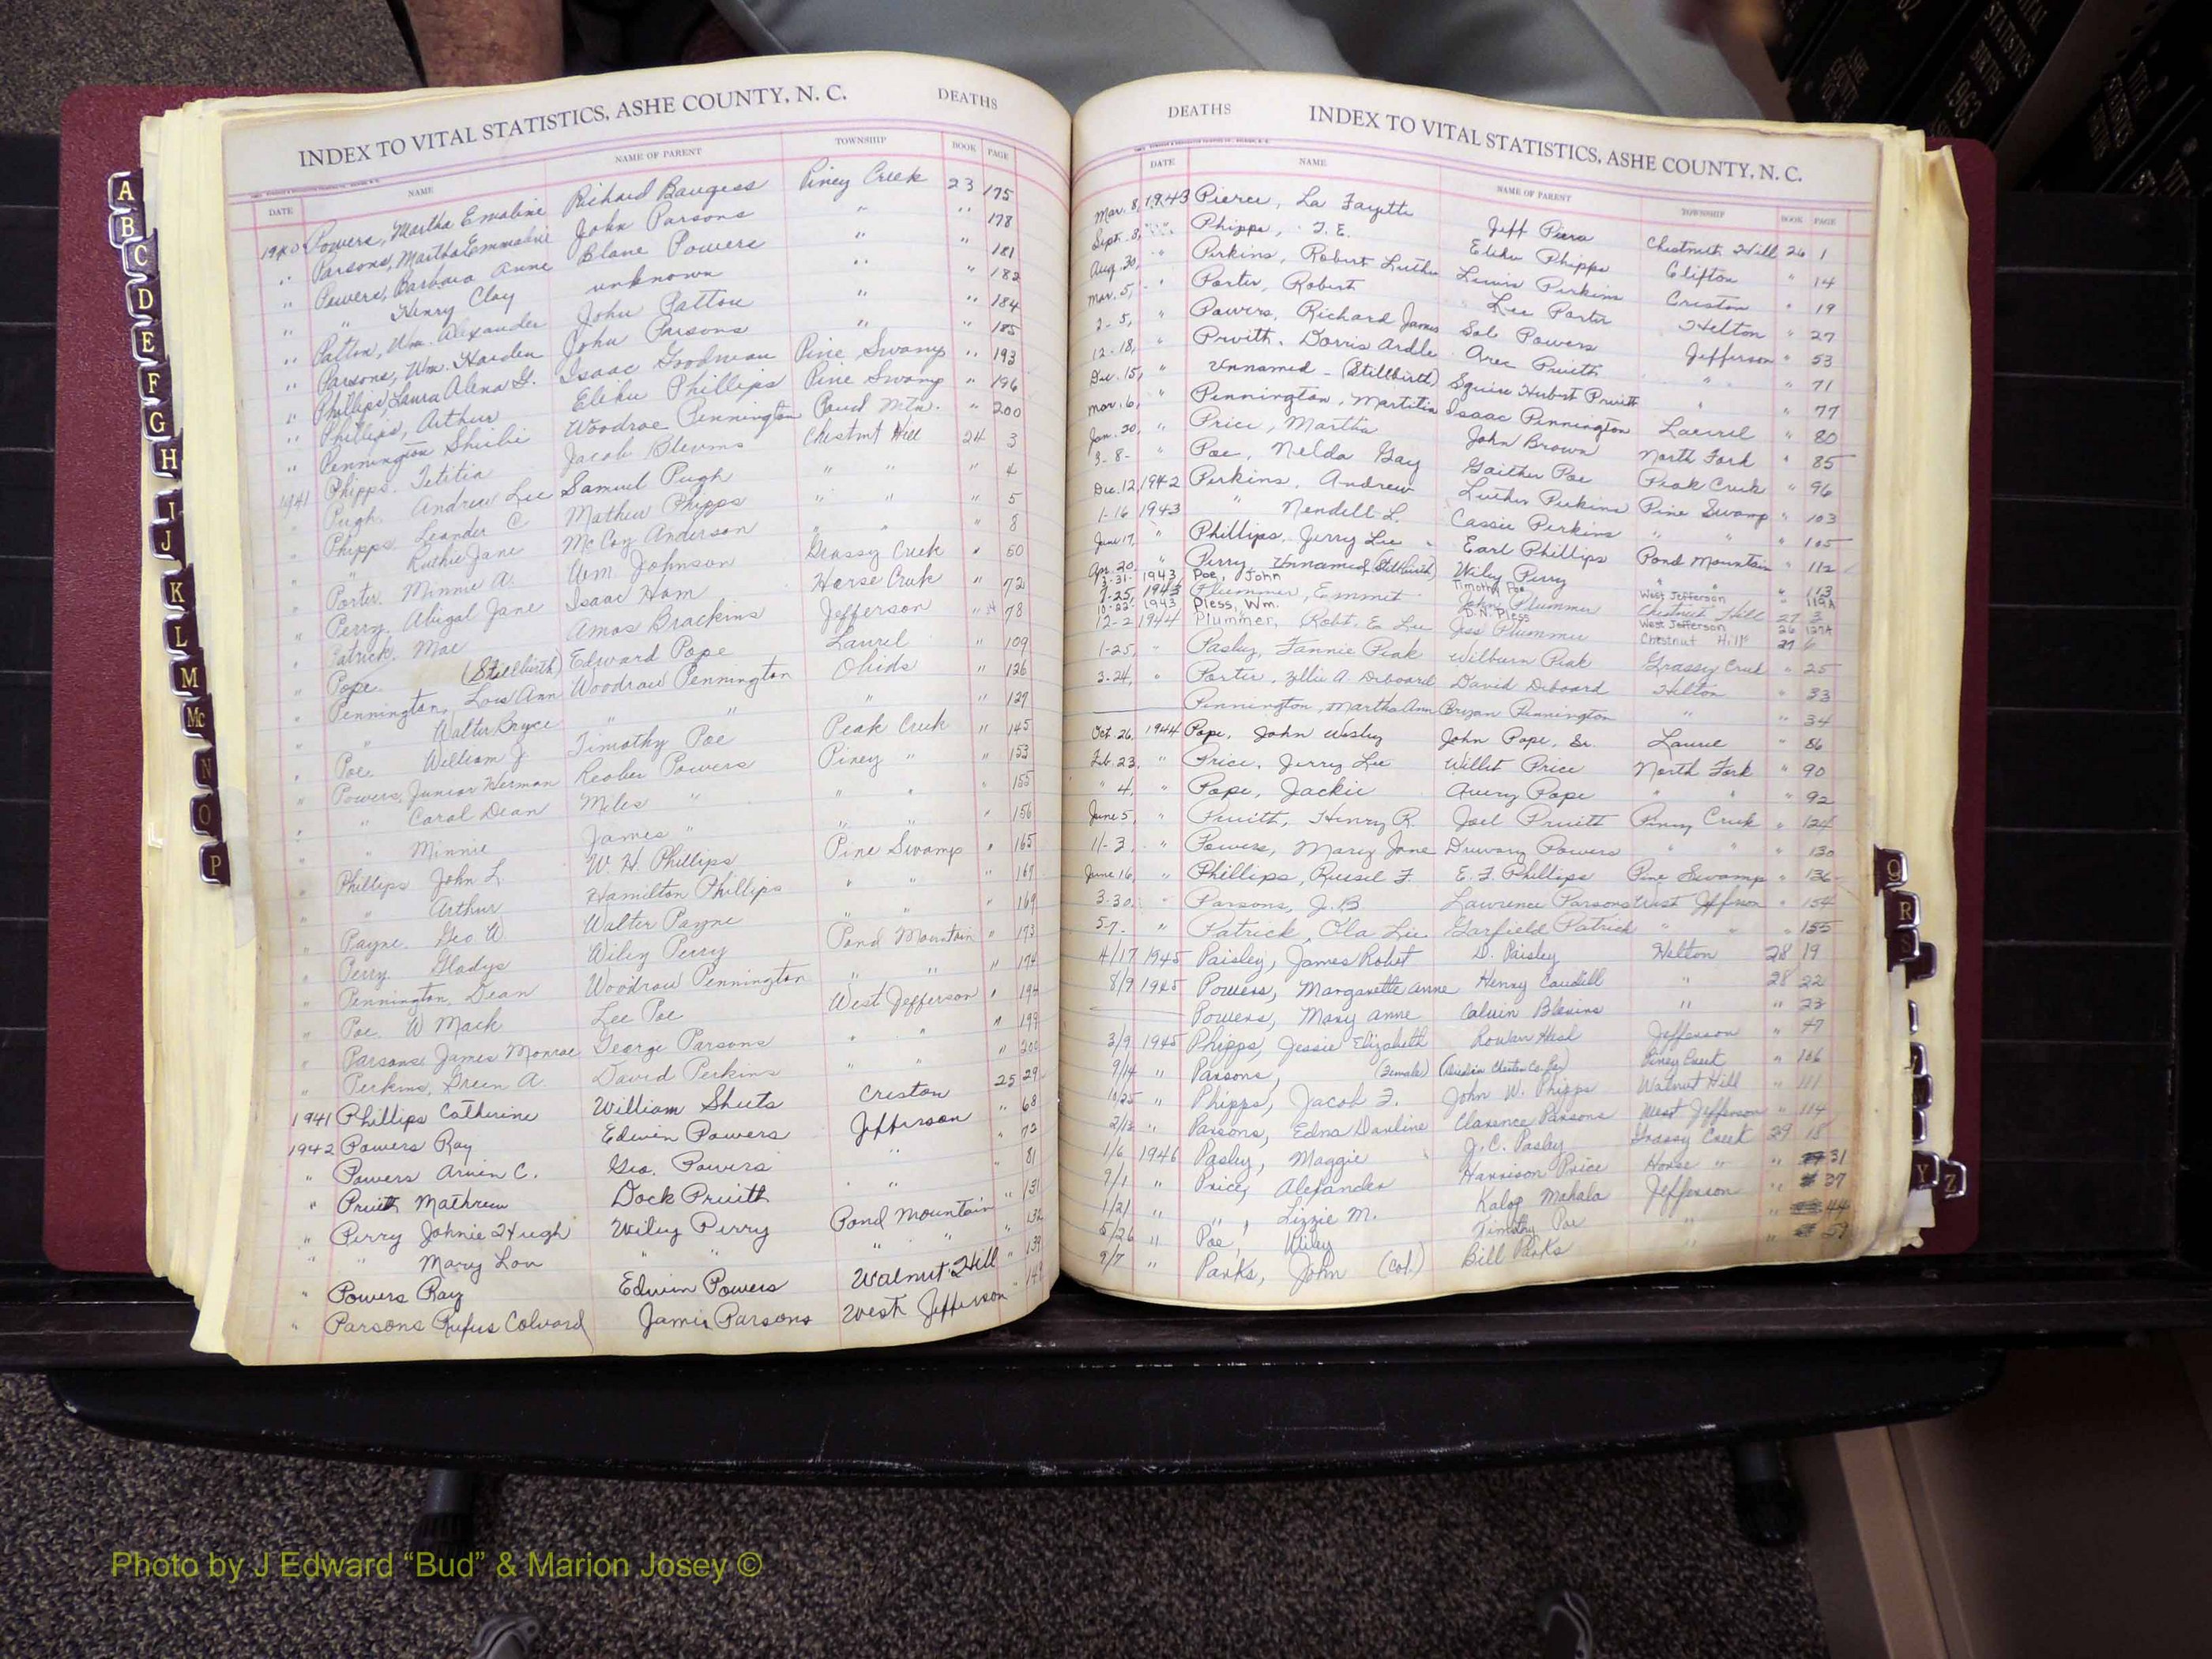 INDEX TO VITAL STATISTICS, ASHE COUNTY, N. C. DEATHS
DATE NAME NAME OF PARENT TOWNSHIP BOOK PAGE
1940 Powers, Martha Emaline Richard Baugess Piney Creek 23 175
" Parsons, Martha Emmaline John Parsons " " 178
" Powers, Barbara Anne Blane Powers " " 181
" " Henry Clay unknown " " 182
" Patton, Wm. Alexander John Patton " " 184
" Parsons, Wm. Harden John Parsons " " 185
" Phillips, Laura Alena G. Isaac Goodman Pine Swamp " 193
" Phillips, Arthur Eliku Phillips Pine Swamp " 196
" Pennington Woodroe Pennington Pond Mtn. " 200
" Phipps. Jacob Blevins Chestnut Hill 24 3
1941 Pugh. Andrew Lee Samuel Pugh " " " 4
" Phipps. Leander C Mathew Phipps " " " 5
" " Ruthie Jane McCoy Anderson " " " 8
" Porter. Minnie A. Wm. Johnson Grassy Creek " 50
" Perry. Abigal Jane Isaac Ham Horse Creek " 72
" Patrick. Mae Amos Brackins Jefferson " 78
" Pope. (Stillbirth) Edward Pope Laurel " 109
" Pennington, Lois Ann Woodrow Pennington Obids " 126
" " Walter Bryce " " " " 127
" Poe. William J. Timothy Poe Peak Creek " 145
" Powers, Junior Herman Reober Powers Piney " " 153
" " Carol Dean Miles " " " " 155
" " Minnie James " " " " 156
" Phillips John L. W. H. Phillips Pine Swamp " 165
" " Arthur Hamilton Phillips " " " 167
" Payne. Geo. W. Walter Payne " " " 169
" Perry. Gladys Wiley Perry Pond Mountain " 173
" Pennington, Dean Woodrow Pennington " " " 174
" Poe. W Mack Lee Poe West Jefferson " 194
" Parsons James Monroe George Parsons " " 199
" Perkins, Green A. David Perkins " " " 200
1941 Phillips Catherine William Sheets Creston 25 29
1942 Powers Ray Edwin Powers Jefferson " 68
" Powers Arvin C. Geo. Powers " " 72
" Pruitt Mathrew Dock Pruitt " " " 81
" Perry Johnie Hugh Wiley Perry Pond Mountain " 131
" " Mary Lou " " " " " 132
" Powers Ray Edwin Powers Walnut Hill " 139
" Parsons Rufus Colvard James Parsons West Jefferson "
DEATHS INDEX TO VITAL STATISTICS, ASHE COUNTY, N. C.
DATE NAME NAME OF PARENT TOWNSHIP BOOK PAGE
Mar. 8, 1943 Pierce, La Fayette Jeff Chestnut Hill 26 1
Sept. 8, " Phipps, T. E. Eliku Phipps Clifton " 14
Aug. 30, " Perkins, Robert Luther Lewis Perkins Creston " 19
Mar. 5, " Porter, Robert Lee Porter Helton " 27
2-5, " Powers, Richard James Sol Powers Jefferson " 53
12-18, " Pruitt. Dorris Ardele Arec Pruitt " " 71
Dec. 15, " Unnamed - (Stillbirth) Squire Hubert Pruitt " " 77
Mar. 6, " Pennington, Martitia Isaac Pennington Laurel " 80
Jan. 20, " Price, Martha John Brown North Fork " 85
3-8- " Poe, Nelda Gay Gaither Poe Peak Creek " 96
Dec. 12, 1942 Perkins, Andrew Luther Perkins Pine Swamp " 103
1-16 1943 " Nendell L. Cassie Perkins " " " 105
June 17, " Phillips, Jerry Lee Earl Phillips Pond Mountain " 112
Apr. 20. " Perry, Unnamed (Stillbirth) Wiley Perry " " " 113
3-31- 1943 Poe, John Timothy Poe West Jefferson " 119A
7-25, 1943 Plummer, Emmit John Plummer Chestnut Hill 27 3
10-22- 1943 Pless, Wm. D.N. Pless West Jefferson 26 127A
12-2 1944 Plummer, Robt. E. Lee Jess Plummer Chestnut Hill 27 6
1-25, " Pasley, Fannie Peak Wilburn Peak Grassy Creek " 25
3-24, " Porter, Zillie A. Deboard David Deboard Helton " 33
Pennington, Martha Ann Bryan Pennington " " 34
Oct 26, 1944 Pope, John Wesley John Pope, Sr. Laurel " 86
Feb. 23, " Price, Jerry Lee Willet Price North Fork " 90
" 4, " Pope, Jackie Avery Pope " " " 92
June 5, " Pruitt, Henry R. Joel Pruitt Piney Creek " 124
11-3 " Powers, Mary Jane Drewery Powers " " " 130
June 16, " Phillips, Russel F. E. F. Phillips Pine Swamp " 136
3-30. " Parsons, J. B Lawrence Parsons West Jefferson " 154
5-7- " Patrick, Ola Lee Garfield Patrick " " " 155
4/17 1945 Paisley, James Robet D. Paisley Helton 28 19
8/9 1945 Powers, Margarette Anne Henry Caudill " 28 22
Powers, Mary Anne Calvin Blevins " " 23
3/9 1945 Phipps, Jessie Elizabeth Rowan Hash Jefferson " 47
9/14 " Parsons, (Female) Piney Creek " 106
10/25 " Phipps, Jacob F. John W. Phipps Walnut Hill " 111
2/13 " Parsons, Edna Darline Clarence Parsons West Jefferson " 114
1/6 1946 Pasley, Maggie J. C. Pasley Grassy Creek 29 18
9/1 " Price, Alexander Harrison Price Horse " " 31
1/21 " " , Lizzie M. Kalop Mahala Jefferson " 37
5/26 " Poe, Wiley Timothy Poe " " 44
9/7 " Parks, John (Col.) Bill Parks " " 59
A
B
C
D
E
F
G
H
I
J
K
L
M
Mc
N
O
P
Q
R
S
Y
Z
VITAL STATISTICS BIRTHS 1963
Photo by J Edward “Bud” & Marion Josey ©